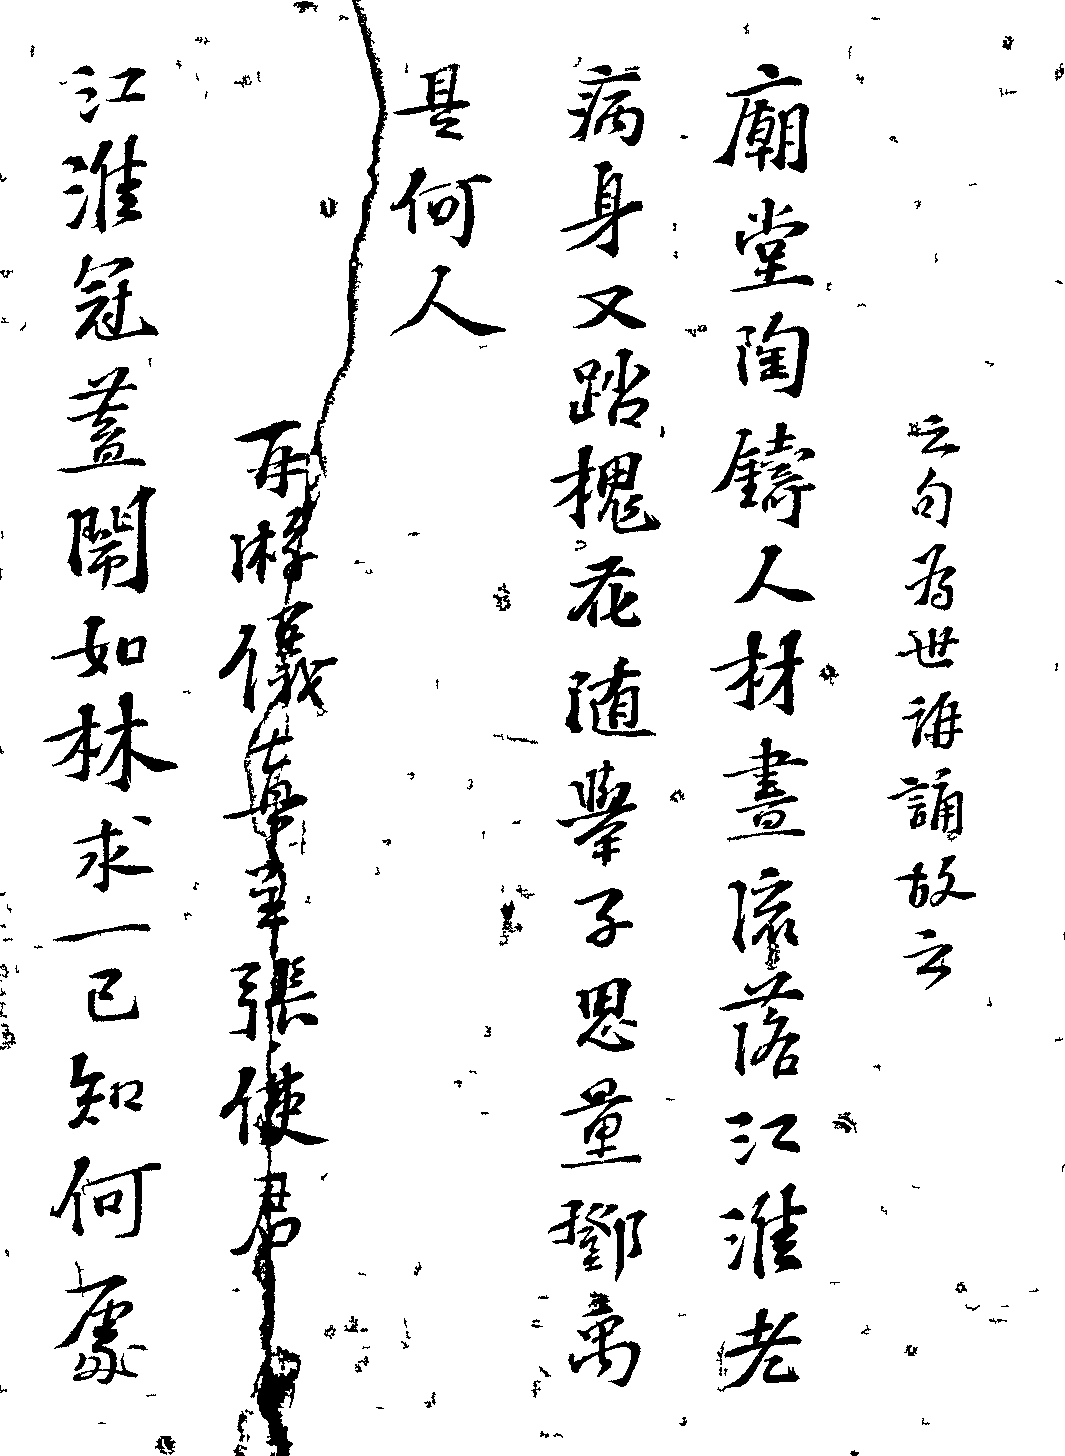 云句為世誦誦故云
廟堂陶鑄人材盡流落江淮老
病身又踏槐花随舉子思量鄧禹
是何人
再游儀真呈張使君
江淮冠蓋鬧如林求一已知何處